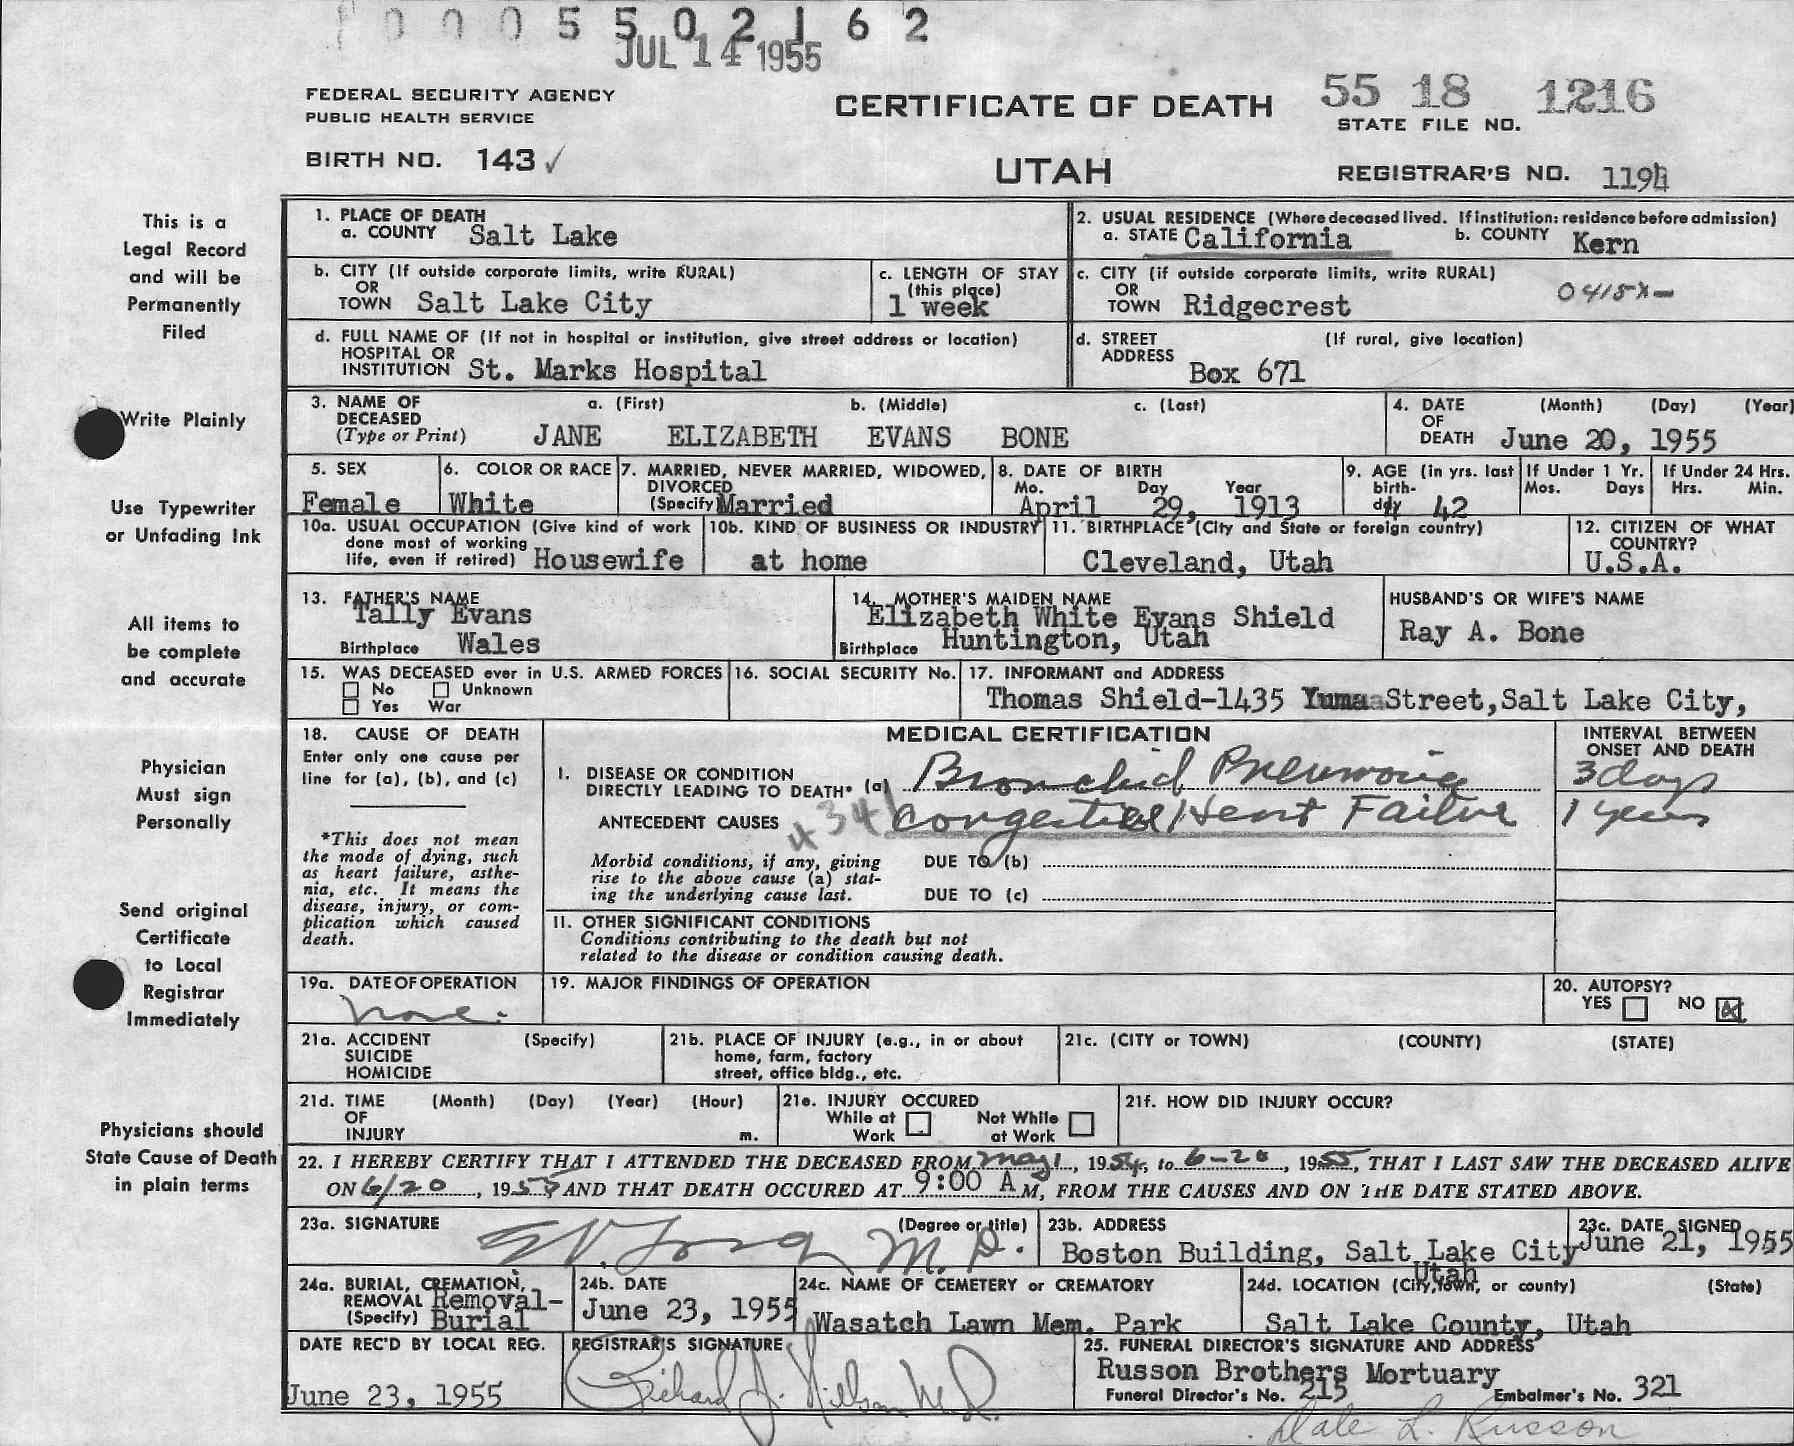 0005502162
JUL 14 1955
FEDERAL SECURITY AGENCY
PUBLIC HEALTH SERVICE
CERTIFICATE OF DEATH
55 18 1216
STATE FILE NO.
BIRTH NO. 143 ✓
UTAH
REGISTRAR'S NO. 1194
This is a
Legal Record
and will be
Permanently
Filed
Write Plainly
Use Typewriter
or Unfading Ink
All items to
be complete
and accurate
Physician
Must sign
Personally
Send original
Certificate
to Local
Registrar
Immediately
Physicians should
State Cause of Death
in plain terms
1. PLACE OF DEATH
a. COUNTY Salt Lake
2. USUAL RESIDENCE (Where deceased lived. If institution: residence before admission)
a. STATE California b. COUNTY Kern
b. CITY (If outside corporate limits, write RURAL)
OR
TOWN Salt Lake City
c. LENGTH OF STAY
(this place)
1 week
c. CITY (if outside corporate limits, write RURAL)
OR
TOWN Ridgecrest
0415X-
d. FULL NAME OF (If not in hospital or institution, give street address or location)
HOSPITAL OR
INSTITUTION St. Marks Hospital
d. STREET (If rural, give location)
ADDRESS
Box 671
3. NAME OF a. (First) b. (Middle) c. (Last)
DECEASED
(Type or Print) JANE ELIZABETH EVANS BONE
4. DATE (Month) (Day) (Year)
OF
DEATH June 20, 1955
5. SEX
Female
6. COLOR OR RACE
White
7. MARRIED, NEVER MARRIED, WIDOWED,
DIVORCED
(Specify) Married
8. DATE OF BIRTH
Mo. Day Year
April 29, 1913
9. AGE (in yrs. last
birth-
day 42
If Under 1 Yr.
Mos. Days
If Under 24 Hrs.
Hrs. Min.
10a. USUAL OCCUPATION (Give kind of work
done most of working
life, even if retired) Housewife
10b. KIND OF BUSINESS OR INDUSTRY
at home
11. BIRTHPLACE (City and State or foreign country)
Cleveland, Utah
12. CITIZEN OF WHAT
COUNTRY?
U.S.A.
13. FATHER'S NAME
Tally Evans
Birthplace Wales
14. MOTHER'S MAIDEN NAME
Elizabeth White Evans Shield
Birthplace Huntington, Utah
HUSBAND'S OR WIFE'S NAME
Ray A. Bone
15. WAS DECEASED ever in U.S. ARMED FORCES
No Unknown
Yes War
16. SOCIAL SECURITY No.
17. INFORMANT and ADDRESS
Thomas Shield-1435 Yuma Street, Salt Lake City,
18. CAUSE OF DEATH
Enter only one cause per
line for (a), (b), and (c)
*This does not mean
the mode of dying, such
as heart failure, asthe-
nia, etc. It means the
disease, injury, or com-
plication which caused
death.
MEDICAL CERTIFICATION
INTERVAL BETWEEN
ONSET AND DEATH
I. DISEASE OR CONDITION
DIRECTLY LEADING TO DEATH* (a) Bronchial Pneumonia 3 days
ANTECEDENT CAUSES 4341 Congestive Heart Failure 1 year
Morbid conditions, if any, giving
rise to the above cause (a) stat-
ing the underlying cause last.
DUE TO (b)
DUE TO (c)
II. OTHER SIGNIFICANT CONDITIONS
Conditions contributing to the death but not
related to the disease or condition causing death.
19a. DATE OF OPERATION
None.
19. MAJOR FINDINGS OF OPERATION
20. AUTOPSY?
YES NO X
21a. ACCIDENT (Specify)
SUICIDE
HOMICIDE
21b. PLACE OF INJURY (e.g., in or about
home, farm, factory
street, office bldg., etc.
21c. (CITY or TOWN) (COUNTY) (STATE)
21d. TIME (Month) (Day) (Year) (Hour)
OF
INJURY m.
21e. INJURY OCCURED
While at Not While
Work at Work
21f. HOW DID INJURY OCCUR?
22. I HEREBY CERTIFY THAT I ATTENDED THE DECEASED FROM May 1, 1954, to 6-20, 1955, THAT I LAST SAW THE DECEASED ALIVE
ON 6/20, 1955 AND THAT DEATH OCCURED AT 9:00 A M, FROM THE CAUSES AND ON THE DATE STATED ABOVE.
23a. SIGNATURE (Degree or title)
M.D.
23b. ADDRESS
Boston Building, Salt Lake City
Utah
23c. DATE SIGNED
June 21, 1955
24a. BURIAL, CREMATION,
REMOVAL Removal-
(Specify) Burial
24b. DATE
June 23, 1955
24c. NAME OF CEMETERY or CREMATORY
Wasatch Lawn Mem. Park
24d. LOCATION (City, town, or county) (State)
Salt Lake County, Utah
DATE REC'D BY LOCAL REG.
June 23, 1955
REGISTRAR'S SIGNATURE
Richard J. Nilson M.D.
25. FUNERAL DIRECTOR'S SIGNATURE AND ADDRESS
Russon Brothers Mortuary
Funeral Director's No. 215 Embalmer's No. 321
Dale L. Russon